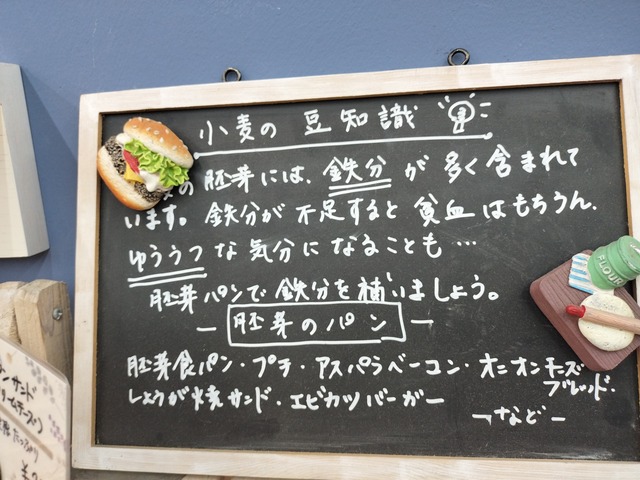 小麦の 豆知識
の 胚芽には、鉄分 が 多く含まれて
います。鉄分が 不足すると 貧血はもちろん、
ゆううつな気分になることも…
胚芽パンで鉄分を補いましょう。
ー 胚芽のパン ー
胚芽食パン・プチ・アスパラベーコン・オニオンチーズ
ブレッド・
しょうが焼サンド・エビカツバーガー
ーなどー
FLOUR
ンサンド